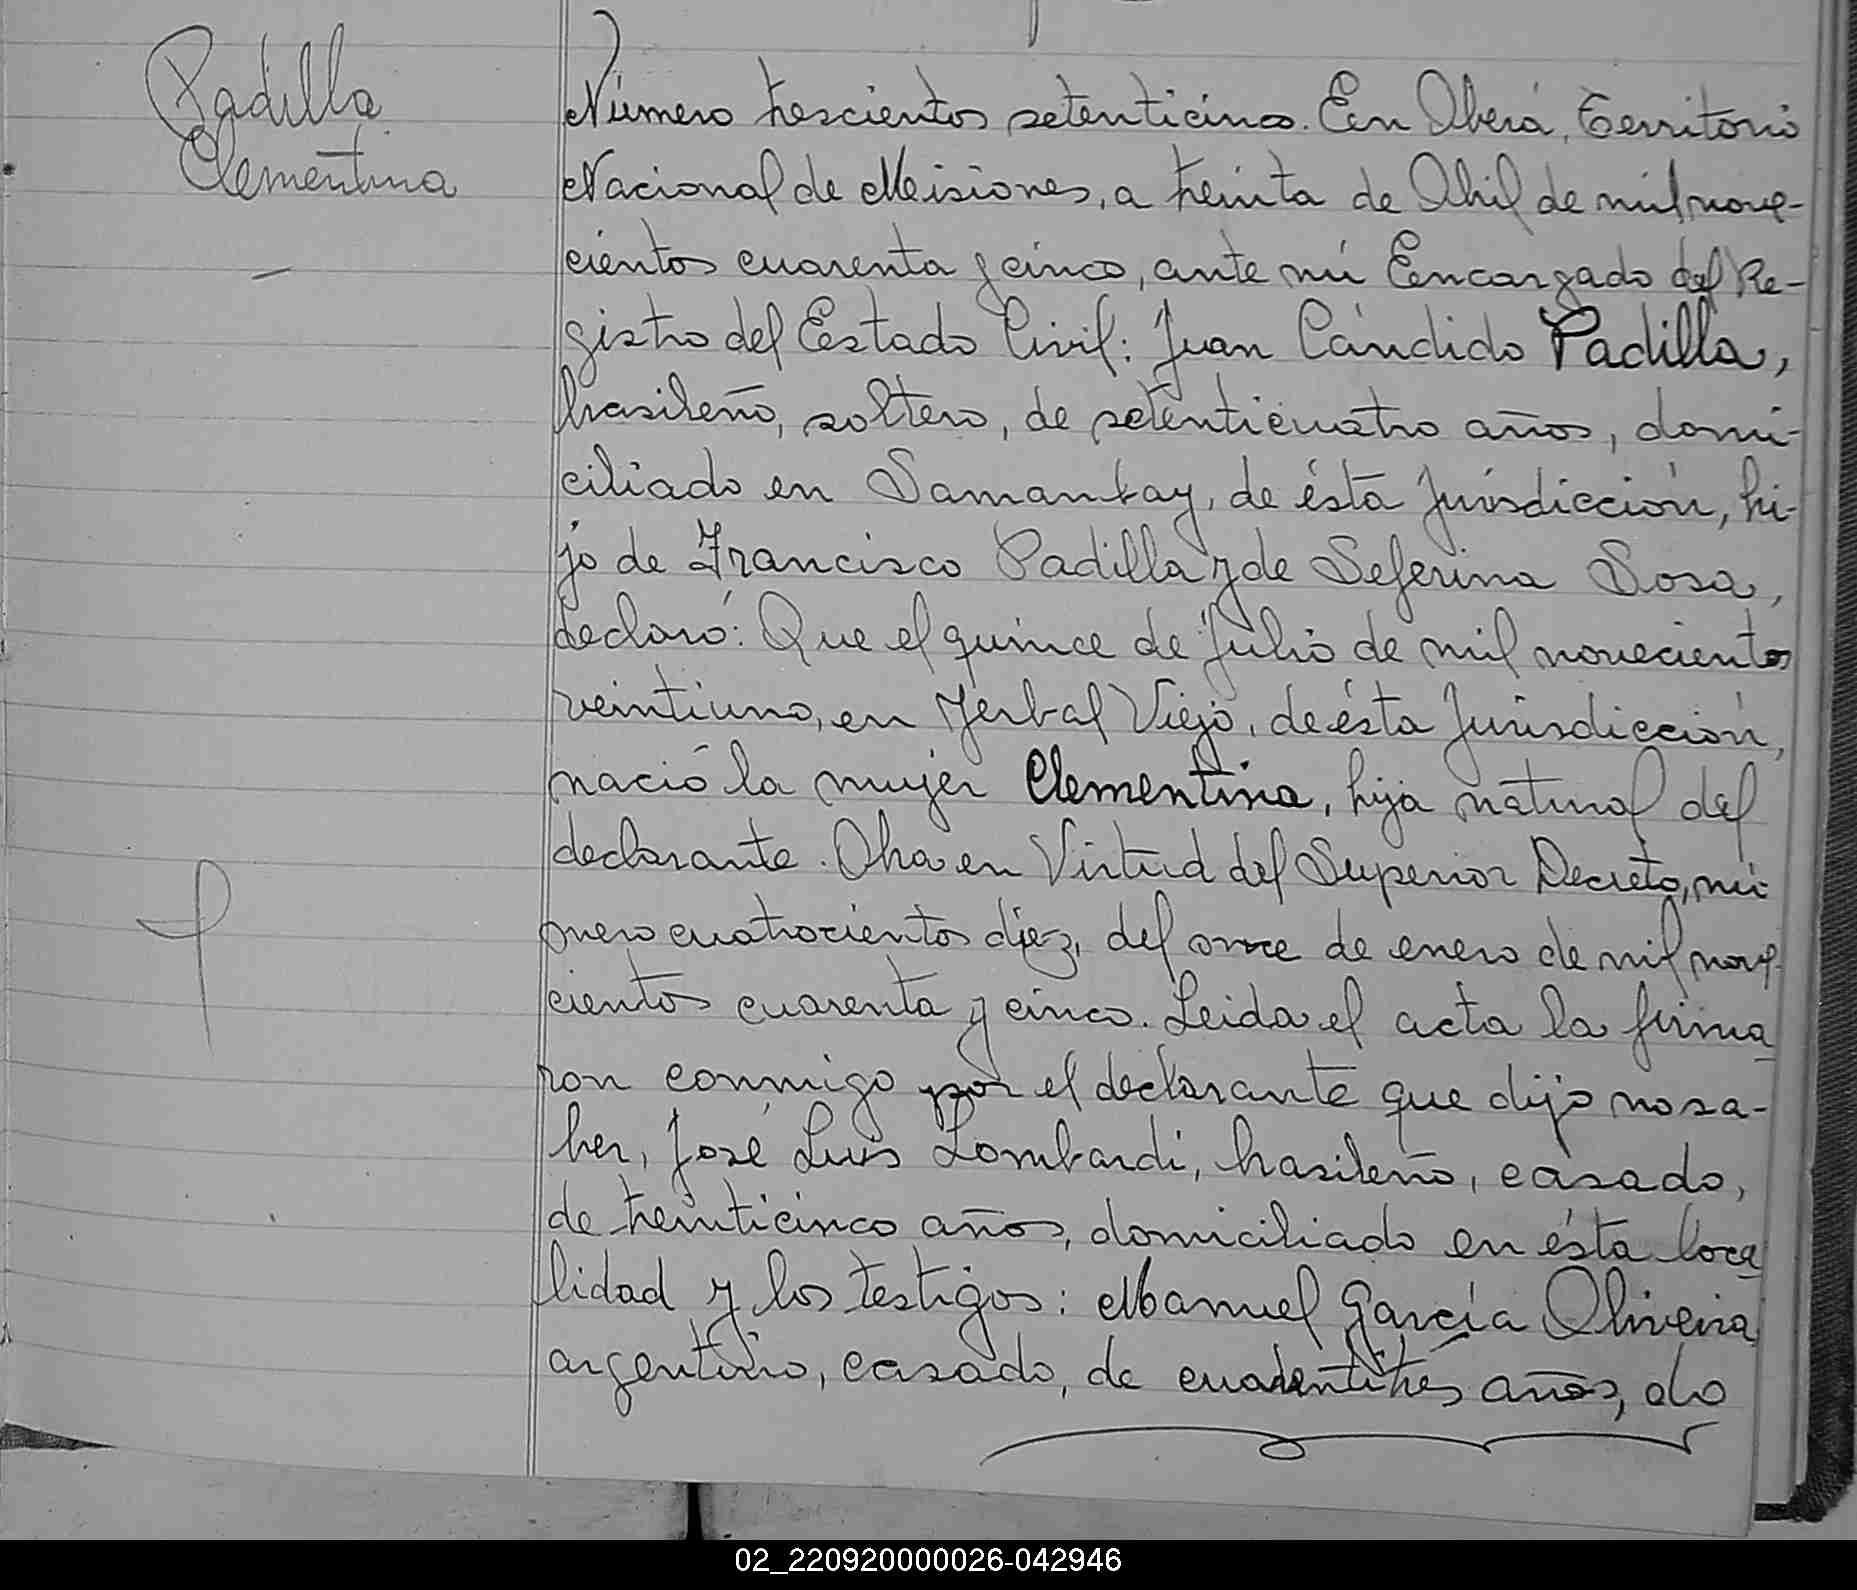 Padilla
Clementina
Número trescientos setenticinco. En Oberá, Territorio
Nacional de Misiones, a treinta de Abril de mil nove-
cientos cuarenta y cinco, ante mi Encargado del Re-
gistro del Estado Civil: Juan Cándido Padilla,
brasileño, soltero, de setenticuatro años, domi-
ciliado en Samambay, de ésta Jurisdicción, hi-
jo de Francisco Padilla y de Seferina Sosa,
declaró: Que el quince de Julio de mil novecientos
veintiuno, en Yerbal Viejo, de ésta Jurisdicción,
nació la mujer Clementina, hija natural del
declarante. Obra en Virtud del Superior Decreto, nú-
mero cuatrocientos diez, del once de enero de mil nove-
cientos cuarenta y cinco. Leida el acta la firma
ron conmigo por el declarante que dijo no sa-
ber, José Luis Lombardi, brasileño, casado,
de treinticinco años, domiciliado en ésta loca
lidad y los testigos: Manuel García Oliveira
argentino, casado, de cuarentitrés años, do
02_220920000026-042946